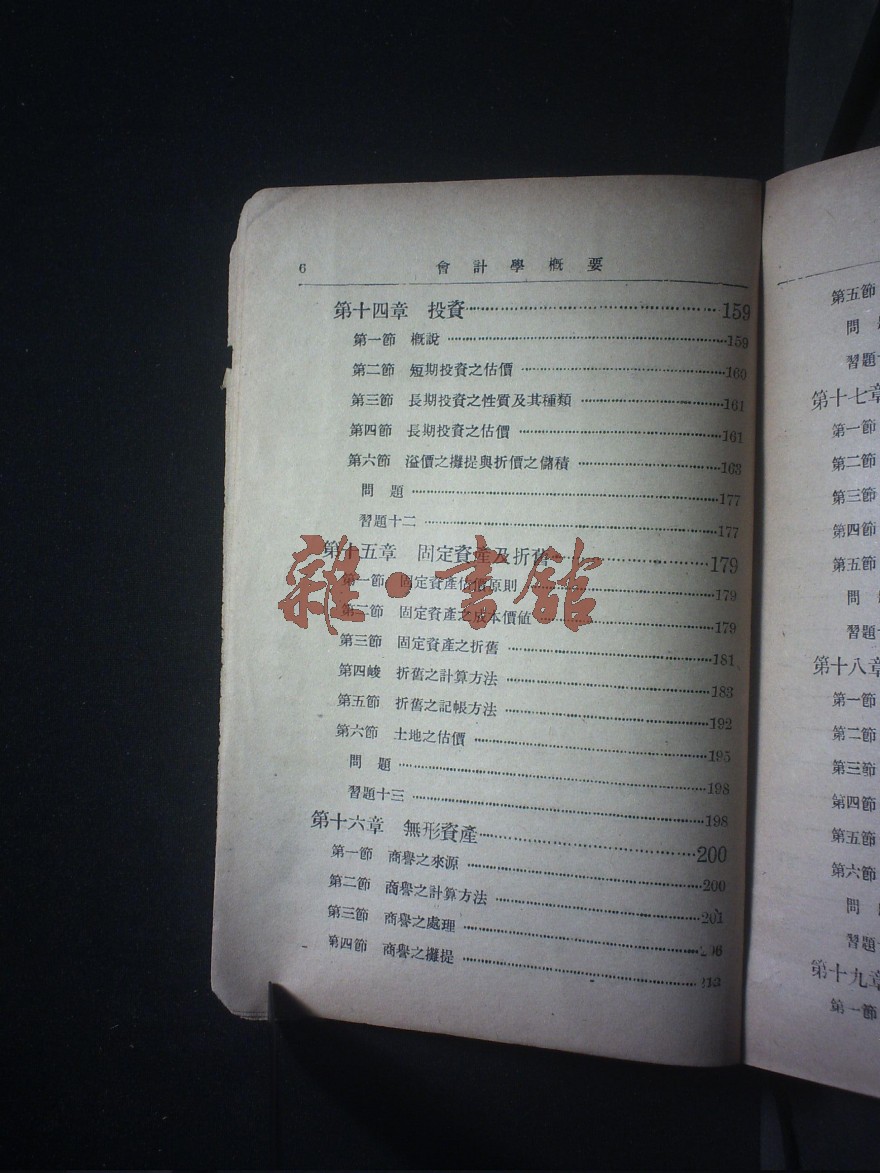 6 會計學概要
第十四章 投資 159
第一節 概說 159
第二節 短期投資之估價 160
第三節 長期投資之性質及其種類 161
第四節 長期投資之估價 161
第六節 溢價之攤提與折價之儲積 163
問題 177
習題十二 177
第十五章 固定資產及折舊 179
第一節 固定資產估價原則 179
第二節 固定資產之成本價値 179
第三節 固定資產之折舊 181
第四峻 折舊之計算方法 183
第五節 折舊之記帳方法 192
第六節 土地之估價 195
問題 198
習題十三 198
第十六章 無形資產 200
第一節 商譽之來源 200
第二節 商譽之計算方法 201
第三節 商譽之處理 206
第四節 商譽之攤提 213
雜·書館
第五節
問
習題十
第十七章
第一節
第二節
第三節
第四節
第五節
問
習題
第十八章
第一節
第二節
第三節
第四節
第五節
第六節
問
習題十
第十九章
第一節